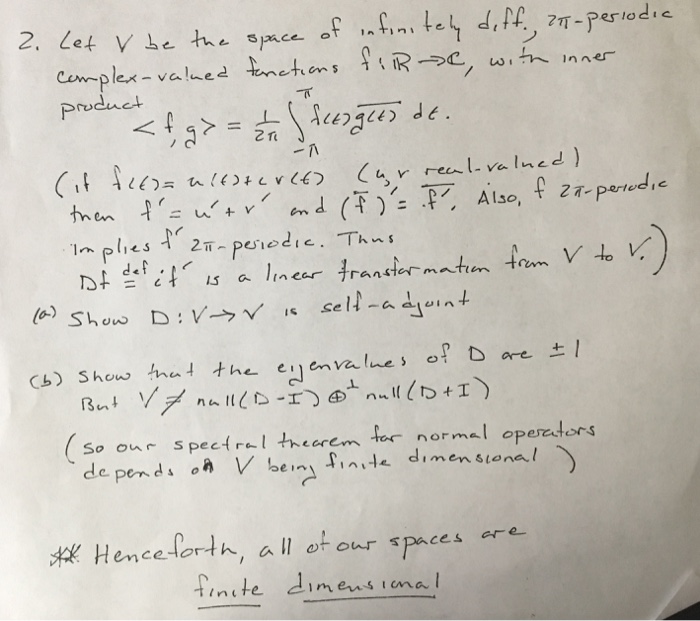 2. Let V be the space of infinitely diff., 2π-periodic
complex-valued functions f: ℝ→ℂ, with inner
product
<f,g> = 1/2π ∫_{-π}^{π} f(t) \overline{g(t)} dt.
(if f(t) = u(t)+iv(t) (u,v real-valued)
then f' = u'+v' and (\overline{f})' = \overline{f'}. Also, f 2π-periodic
implies f' 2π-periodic. Thus
Df \overset{def}{=} if' is a linear transformation from V to V.)
(a) Show D: V→V is self-adjoint
(b) Show that the eigenvalues of D are ±1
But V ≠ null(D-I) ⊕^⊥ null(D+I)
(so our spectral theorem for normal operators
depends on V being finite dimensional)
** Henceforth, all of our spaces are
finite dimensional